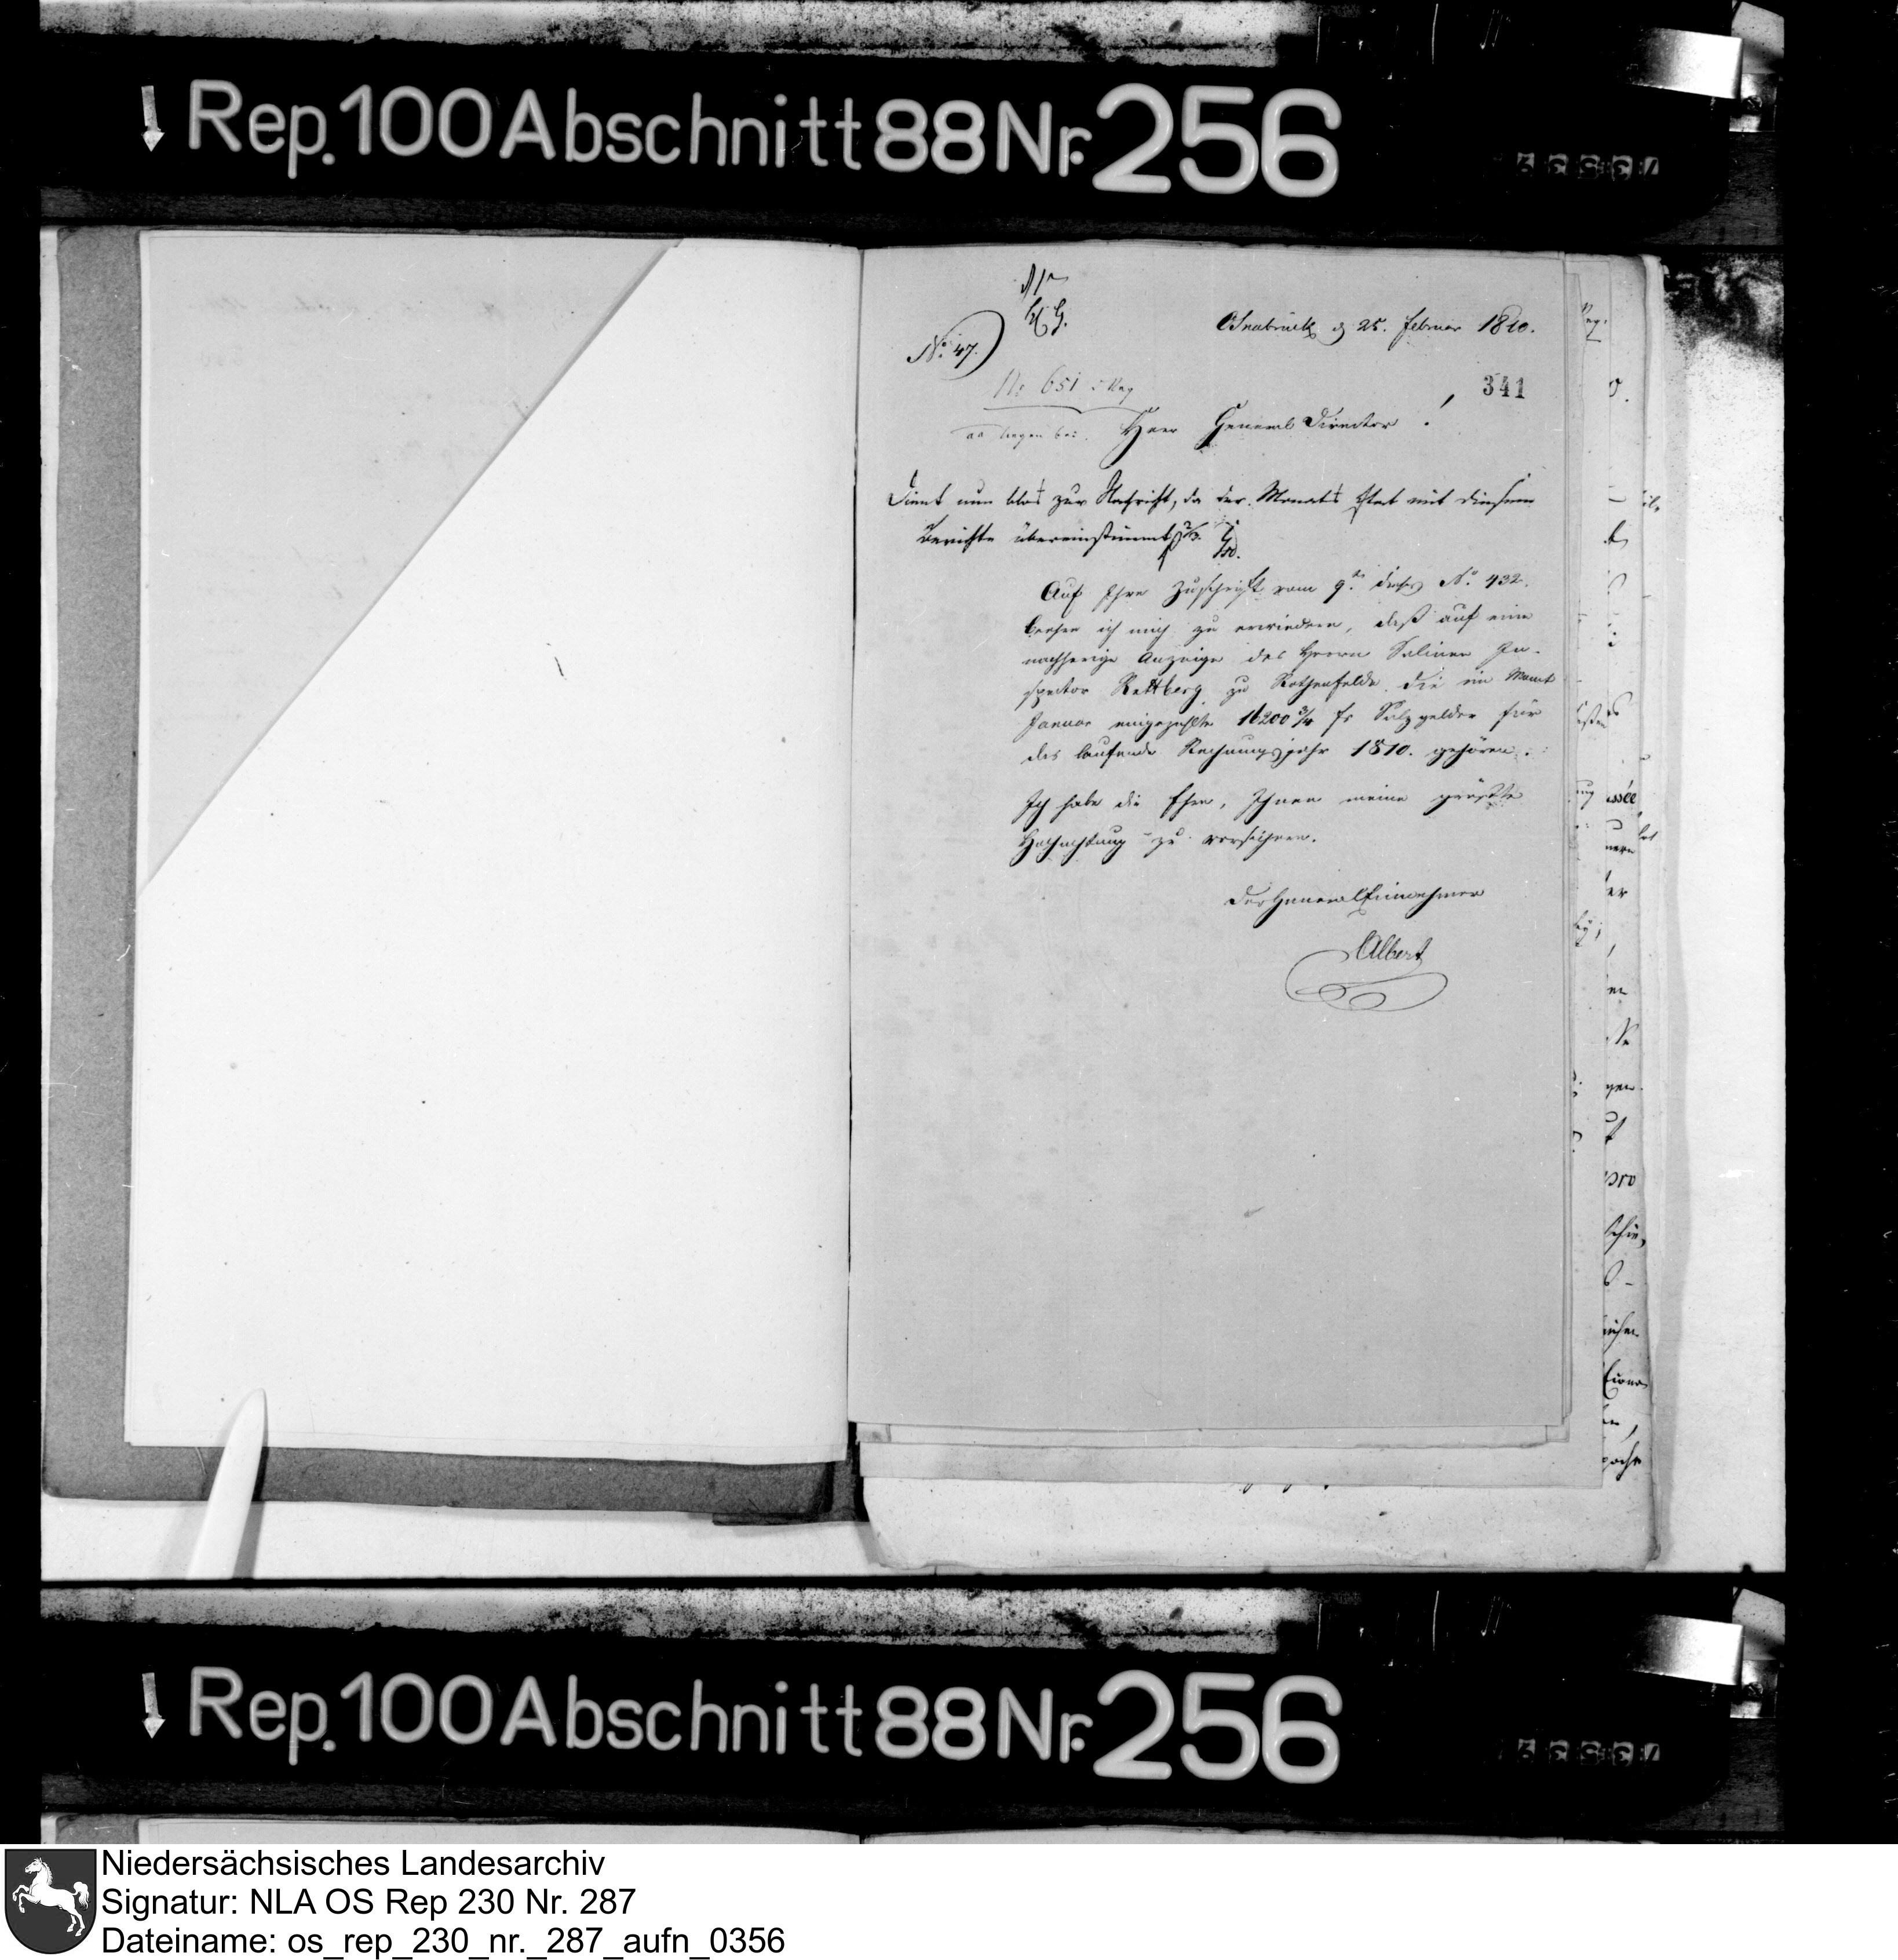 Rep. 100 Abschnitt 88 Nr. 256
73539
Osnabrück d 25. Februar 1810.
No. 47.
No 651
341
Herr General Director!
Dient nun blos zur Nachricht, da der Monats Etat mit diesem
Berichte übereinstimmt
Auf Ihre Zuschrift vom 9ten dieses No. 432.
beehre ich mich zu erwiedern, daß auf eine
nachherige Anzeige des Herrn Salinen In-
spector Rettberg zu Rothenfelde die im Monat
Januar eingezahlte 16200 3/4 fr Salzgelder für
das laufende Rechnungsjahr 1810. gehören.
Ich habe die Ehre, Ihnen meine größte
Hochachtung zu versichern.
Der General Einnehmer
Albert
Rep. 100 Abschnitt 88 Nr. 256
73539
Niedersächsisches Landesarchiv
Signatur: NLA OS Rep 230 Nr. 287
Dateiname: os_rep_230_nr._287_aufn_0356